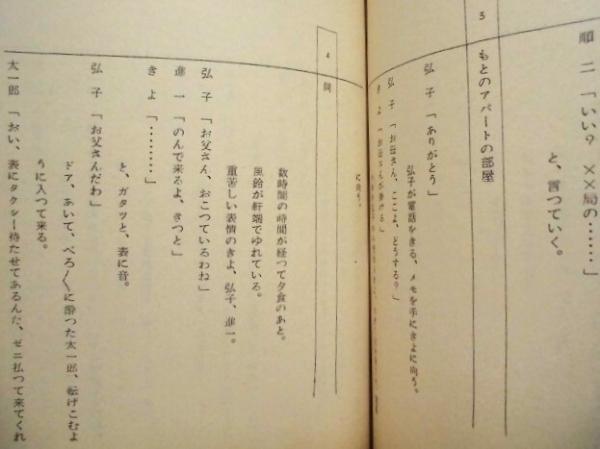 順二「いい？ ××局の………」
と、言つていく。
3 もとのアパートの部屋
弘子「ありがとう」
弘子が電話をきる、メモを手にきよに向う。
弘子「お母さん、ここよ、どうする？」
きよ「お母さんが掛ける」
に向う。
4 同
数時間の時間が経つて夕食のあと。
風鈴が軒端でゆれている。
重苦しい表情のきよ、弘子、進一。
弘子「お父さん、おこつているわね」
進一「のんで来るよ、きつと」
きよ「………」
と、ガタッと、表に音。
弘子「お父さんだわ」
ドア、あいて、べろ〳〵に酔つた太一郎、転げこむよ
うに入つて来る。
太一郎「おい、表にタクシー待たせてあるんだ、ゼニ払つて来てくれ